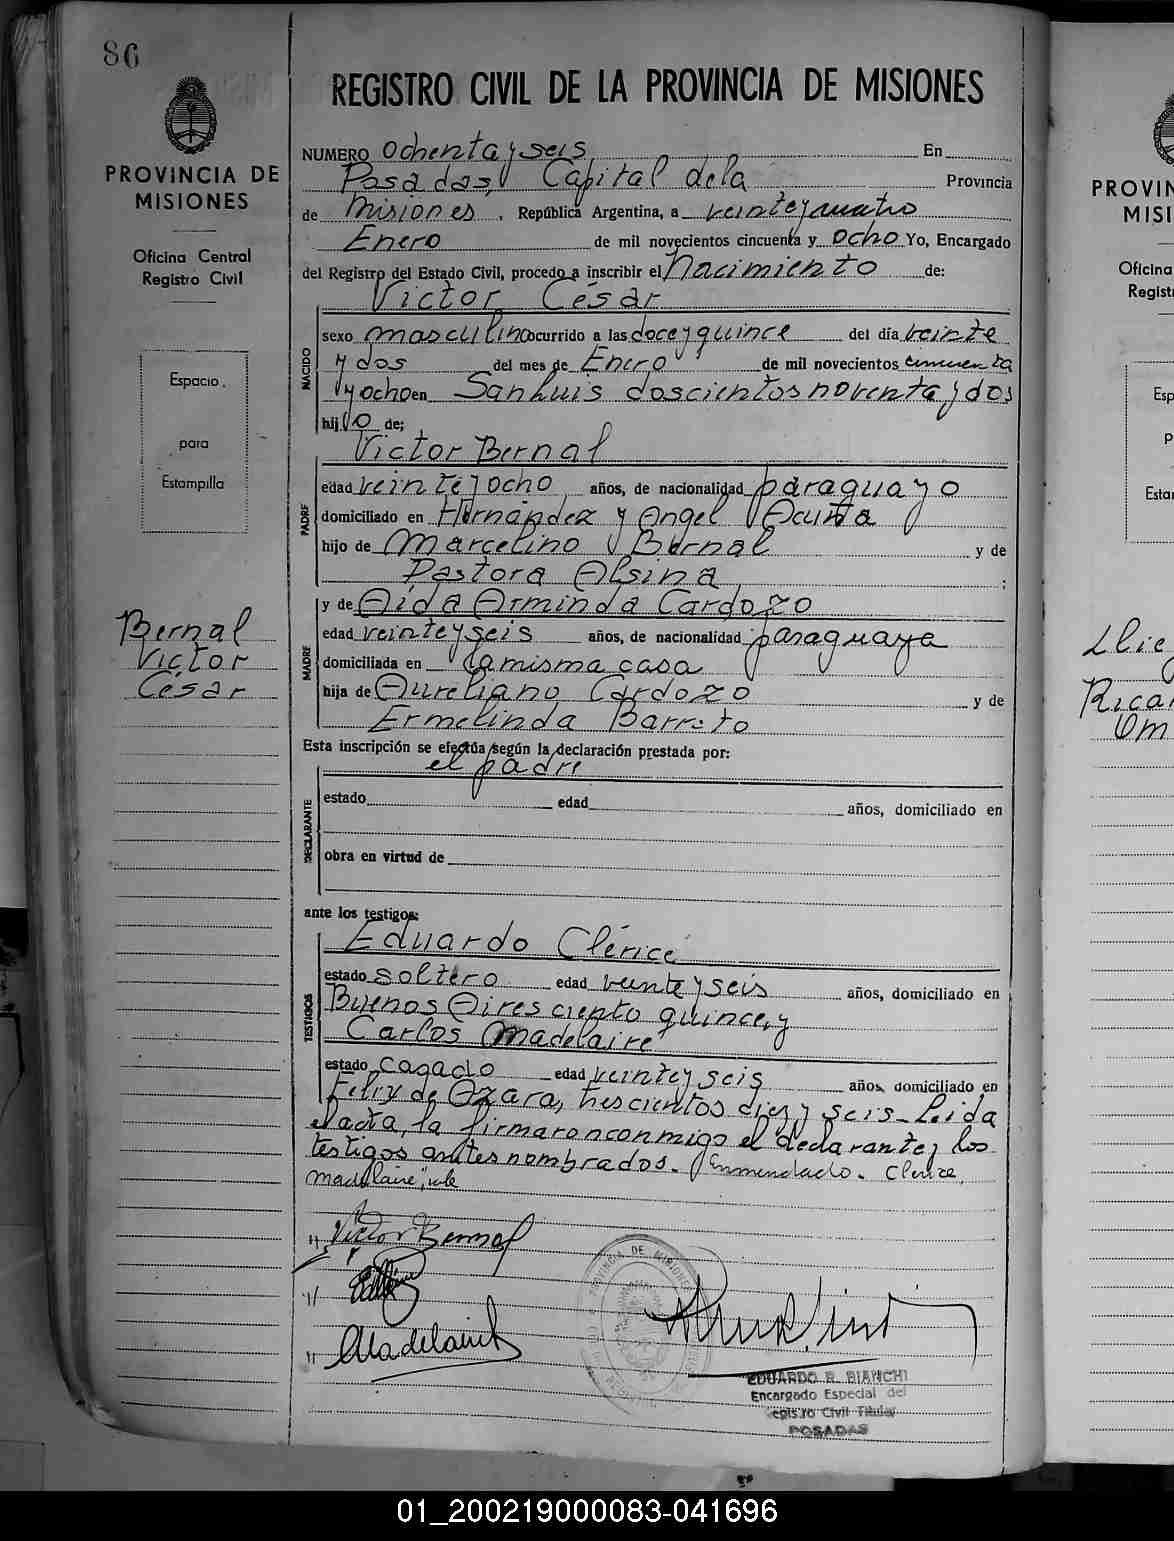 86
PROVINCIA DE
MISIONES
Oficina Central
Registro Civil
Espacio
para
Estampilla
Bernal
Victor
César
REGISTRO CIVIL DE LA PROVINCIA DE MISIONES
NUMERO Ochenta y seis En
Posadas, Capital de la Provincia
de Misiones, República Argentina, a veinte y cuatro
Enero de mil novecientos cincuenta y ocho Yo, Encargado
del Registro del Estado Civil, procedo a inscribir el Nacimiento de:
Victor César
NACIDO
sexo masculino ocurrido a las doce y quince del día veinte
y dos del mes de Enero de mil novecientos cincuenta
y ocho en San Luis doscientos noventa y dos
hijo de:
Victor Bernal
PADRE
edad veinte y ocho años, de nacionalidad paraguayo
domiciliado en Hernández y Angel Acuña
hijo de Marcelino Bernal y de
Pastora Alsina ;
MADRE
y de Aída Arminda Cardozo
edad veinte y seis años, de nacionalidad paraguaya
domiciliada en la misma casa
hija de Aureliano Cardozo y de
Ermelinda Barreto
Esta inscripción se efectúa según la declaración prestada por:
el padre
DECLARANTE
estado edad años, domiciliado en
obra en virtud de
ante los testigos:
Eduardo Clérice
TESTIGOS
estado soltero edad veinte y seis años, domiciliado en
Buenos Aires ciento quince, y
Carlos Madelaire
estado casado edad veinte y seis años, domiciliado en
Felix de Azara, trescientos diez y seis - Leida
el acta, la firmaron conmigo el declarante y los
testigos antes nombrados. - Enmendado - Clerice,
Madelaire, vale
Victor Bernal
Madelaire
PROVINCIA DE MISIONES
EDUARDO R. BIANCHI
Encargado Especial del
Registro Civil Titular
POSADAS
PROVIN
MISI
Oficina
Regist
Esp
P
Estar
Ricar
Om
01_200219000083-041696